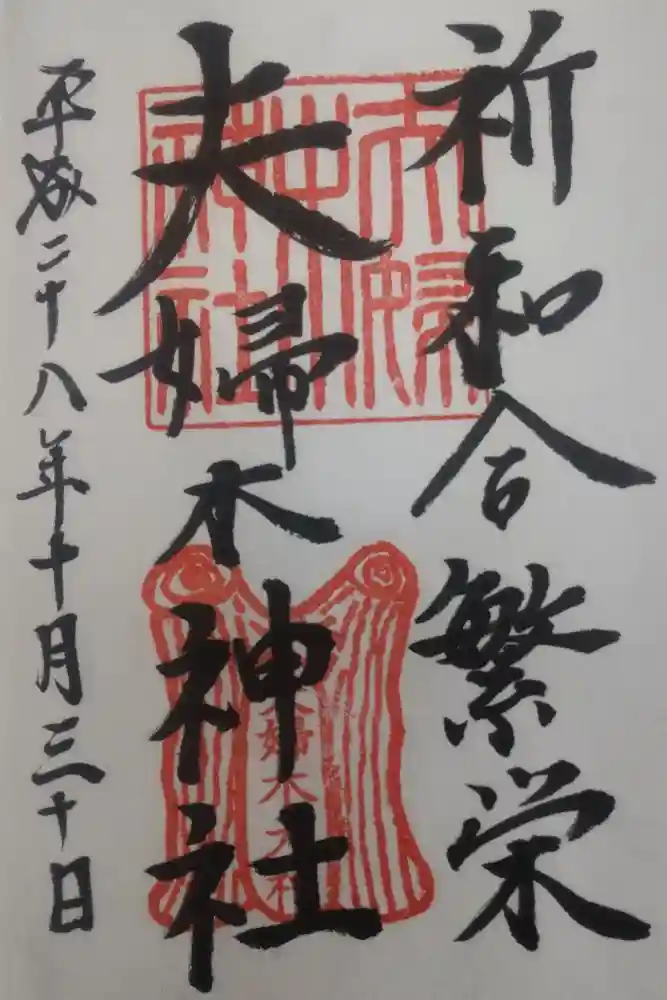 祈和合繁栄
夫婦木神社
平成二十八年十月三十日
夫婦木神社